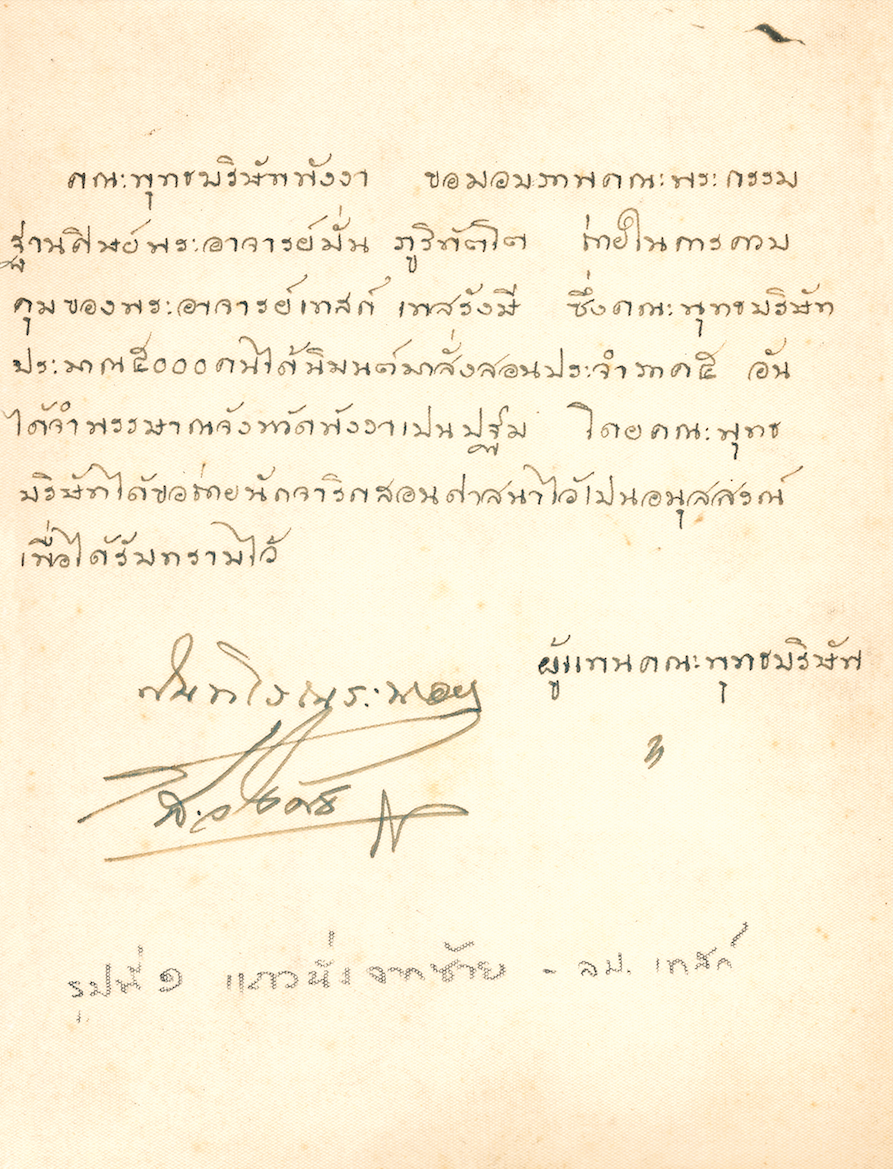 คณะพุทธบริษัทพังงา ขอมอบภาพคณะพระกรรม
ฐานศิษย์พระอาจารย์มั่น ภูริทัตโต ภายในการควบ
คุมของพระอาจารย์เทสก์ เทสรังษี ซึ่งคณะพุทธบริษัท
ประมาณ๕๐๐๐คนได้นิมนต์มาสั่งสอนประจำภาค๕ อัน
ได้จำพรรษาณจังหวัดพังงาเปนปฐม โดยคณะพุทธ
บริษัทได้ขอถ่ายนักจาริกสอนศาสนาไว้เปนอนุสสรณ์
เพื่อได้รับทราบไว้
ผู้แทนคณะพุทธบริษัท
รูปที่ ๑ แถวนั่งจากซ้าย - ลป. เทสก์